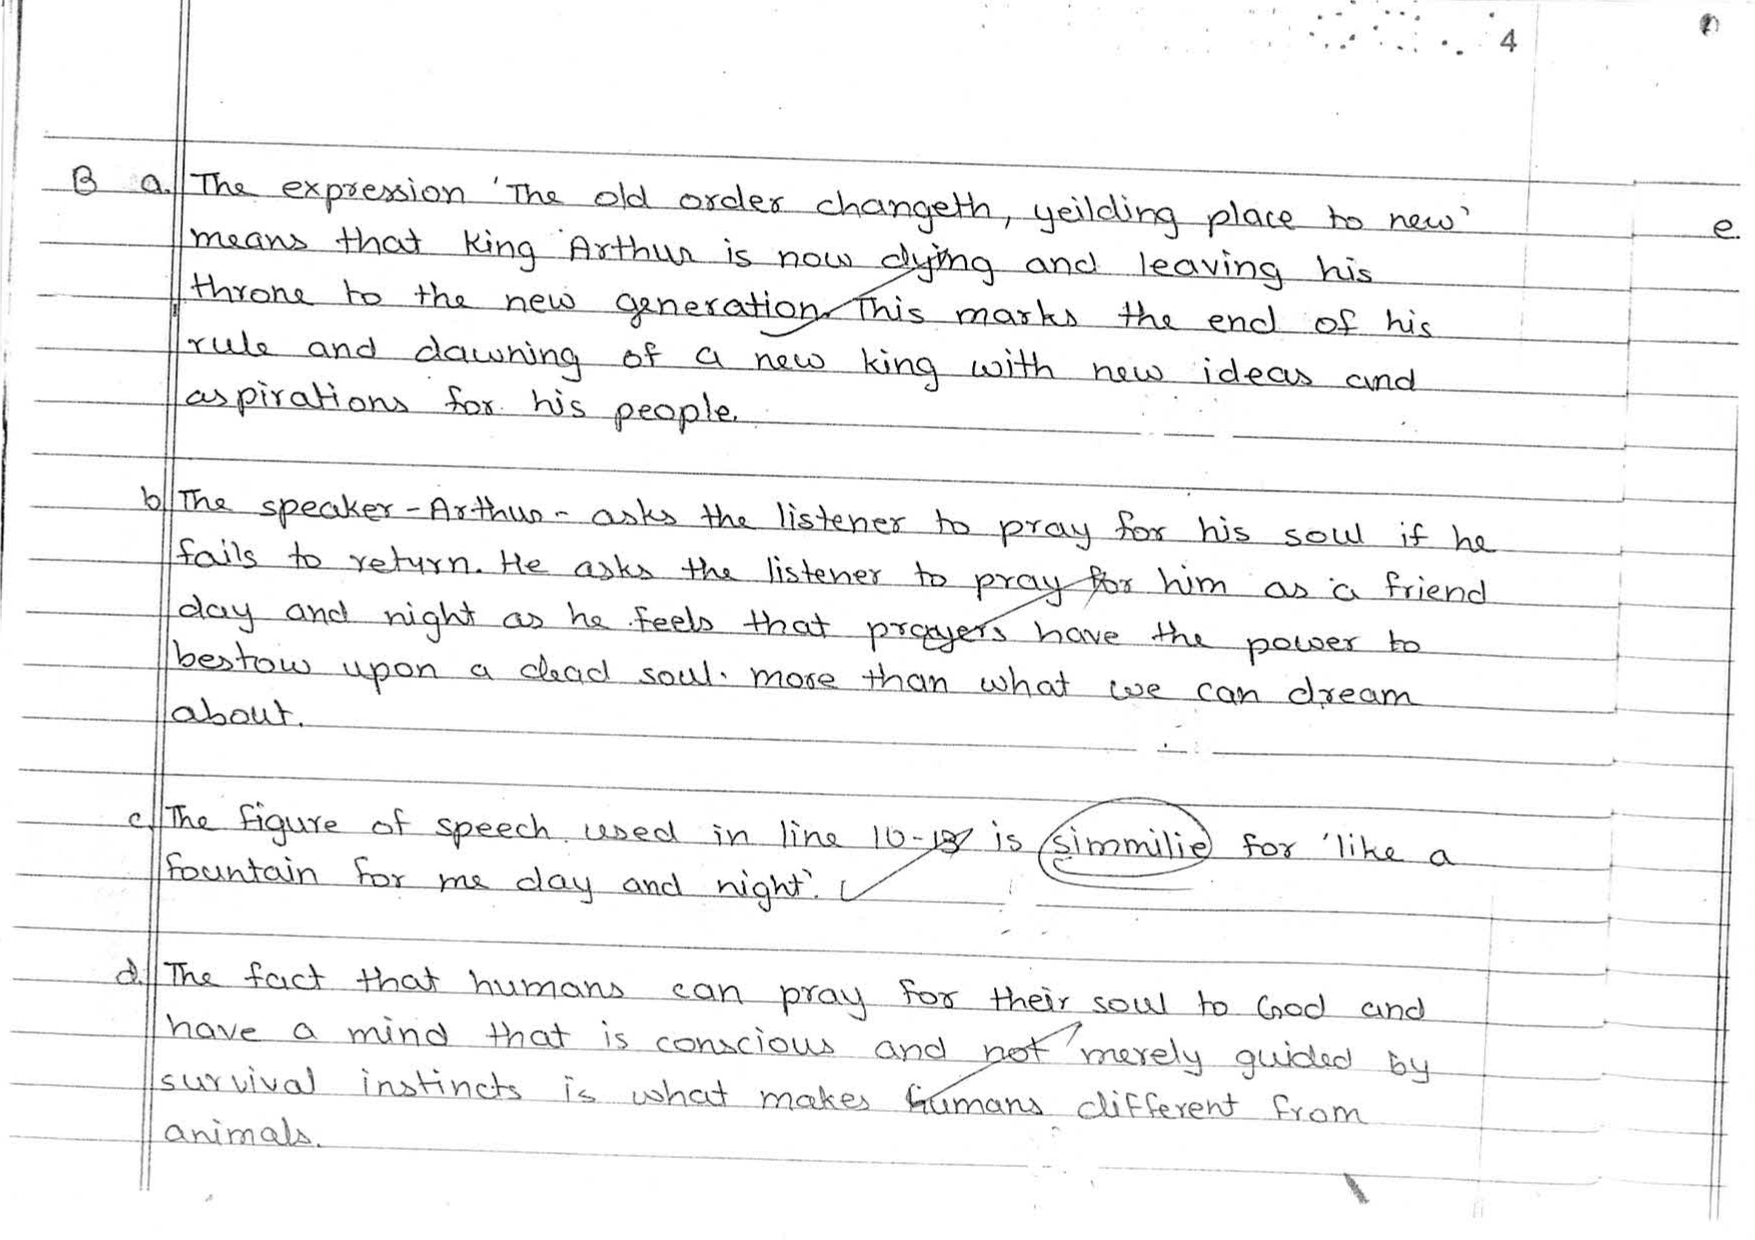 4
B a. The expression 'The old order changeth, yeilding place to new'
means that King Arthur is now dying and leaving his
throne to the new generation. This marks the end of his
rule and dawning of a new king with new ideas and
aspirations for his people.
b. The speaker - Arthur - asks the listener to pray for his soul if he
fails to return. He asks the listener to pray for him as a friend
day and night as he feels that prayers have the power to
bestow upon a dead soul. more than what we can dream
about.
c. The figure of speech used in line 10-13 is simmilie for 'like a
fountain for me day and night'.
d. The fact that humans can pray for their soul to God and
have a mind that is conscious and not merely guided by
survival instincts is what makes humans different from
animals.
e.